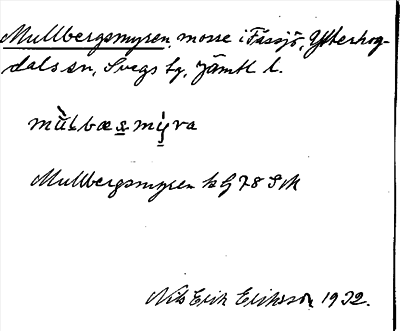 Mullbergsmyren, mosse i Fåssjö, Ytterhog-
dals sn, Svegs tg, Jämtl l.
mùLbæsmy̆ra
Mullbergsmyren bg 78 SM
Nils Erik Eriksson 1932.